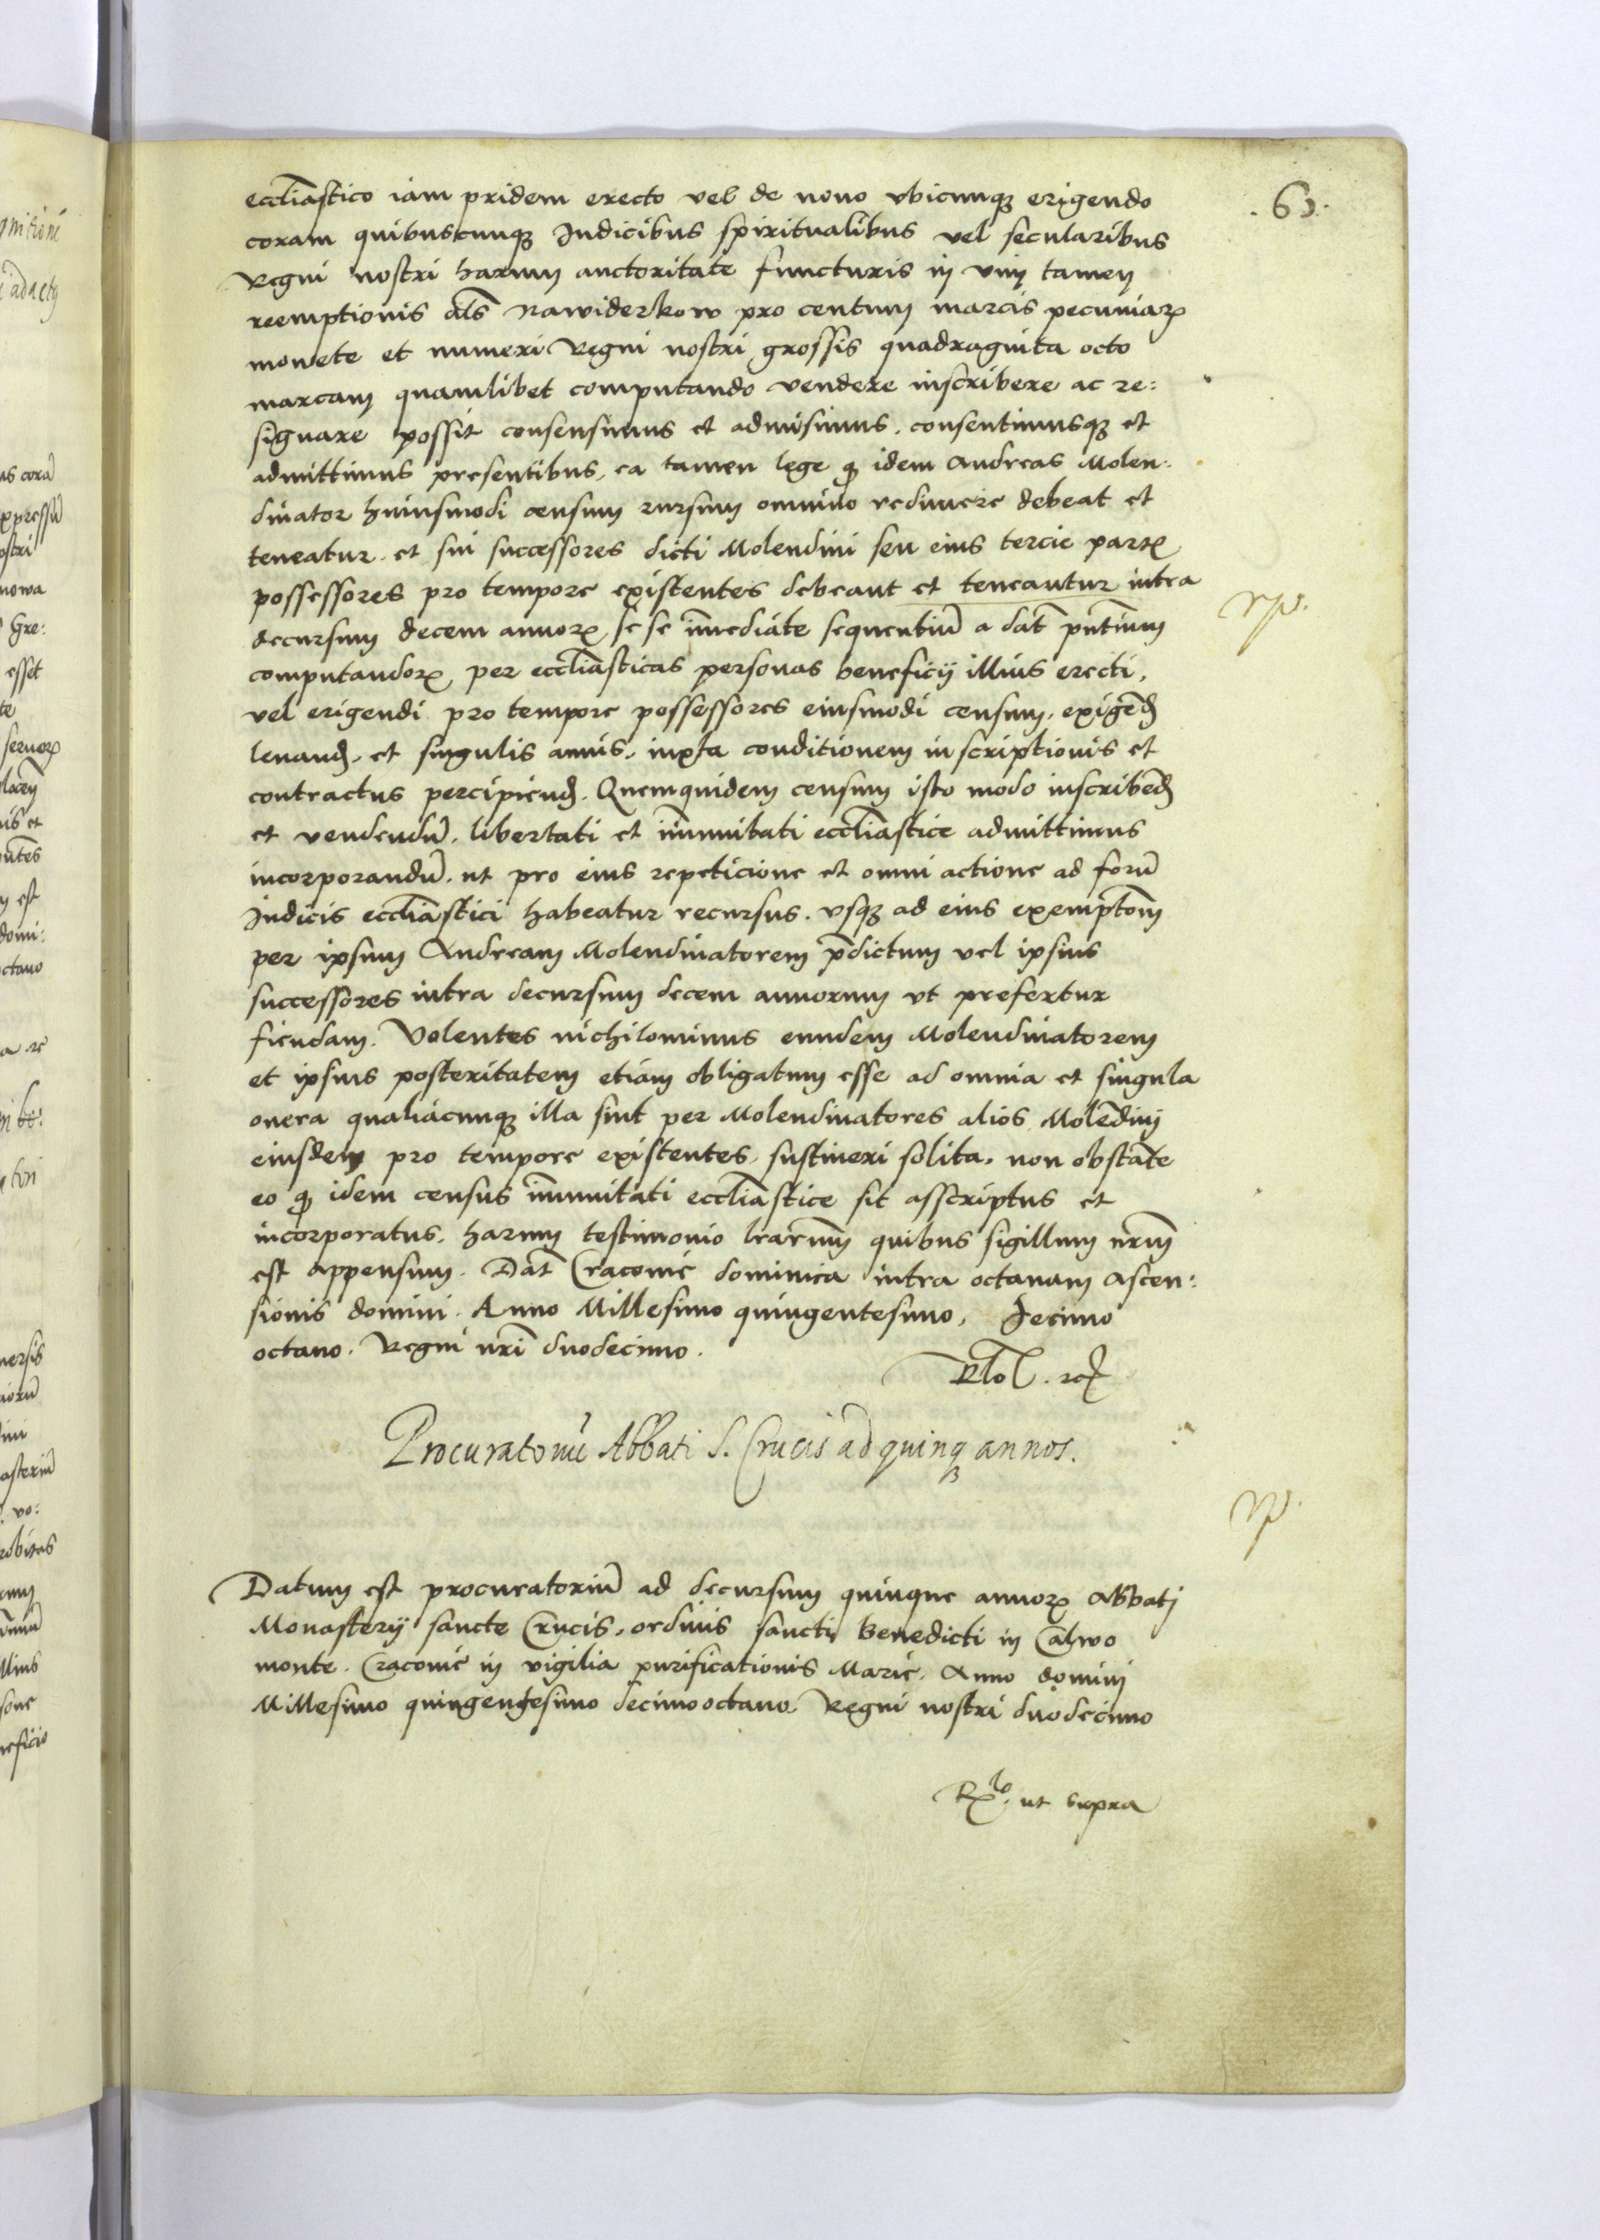 .63.
eccliastico iam pridem erecto vel de nouo vbicunqꝫ erigendo
coram quibuscunqꝫ Iudicibus spiritualibus vel secularibus
Regni nostri harum auctoritate functuris in vim tamen
reemptionis als Nawiderkow pro centum marcis pecuniarꝫ
monete et numeri Regni nostri grossis quadraginta octo
marcam quamlibet computando vendere inscribere ac re:
signare possit consensimus et admisimus. consentimusqꝫ et
admittimus presentibus, ea tamen lege ꝙ idem Andreas Molen:
dinator huiusmodi censum rursum omnino redimere debeat et
teneatur. et sui successores dicti Molendini seu eius tercie partꝫ
possessores pro tempore existentes debeant et teneantur intra
decursum decem annorꝫ se se im̄ediate sequentiū a dat̄ pn̄tium
computandorꝫ, per eccliasticas personas beneficij illius erecti,
vel erigendi pro tempore possessores eiusmodi censum, exigēd
leuand, et singulis annis, iuxta conditionem inscriptionis et
contractus percipiend. Quemquidem censum isto modo inscribēd
et vendendū, libertati et im̄unitati eccliastice admittimus
incorporandū. ut pro eius repeticione et omni actione ad forū
Iudicis eccliastici habeatur recursus. vsqꝫ ad eius exemptōm
per ipsum Andream Molendinatorem p̄dictum vel ipsius
successores intra decursum decem annorum vt prefertur
fiendam. Volentes nichilominus eundem Molendinatorem
et ipsius posteritatem etiam obligatum esse ad omnia et singula
onera qualiacunqꝫ illa sint per Molendinatores alios Molēdini
eiusdem pro tempore existentes, sustineri solita, non obstāte
eo ꝙ idem census im̄unitati eccliastice sit asscriptus et
incorporatus, harum testimonio lrarum quibus sigillum nrm̄
est appensum. Dat̄ Cracouie dominica intra octauam ascen:
sionis domini. Anno Millesimo quingentesimo, Decimo
octauo. Regni nr̄i duodecimo.
Procuratoriū Abbati S. Crucis ad quinqꝫ annos.
Datum est procuratoriū ad decursum quinque annorꝫ Abbati
Monasterij sancte Crucis, ordinis sancti Benedicti in Calwo
monte. Cracouie in vigilia purificationis Marie. Anno domini
Millesimo quingentesimo decimooctauo. Regni nostri duodecimo
Rlo. ut supra